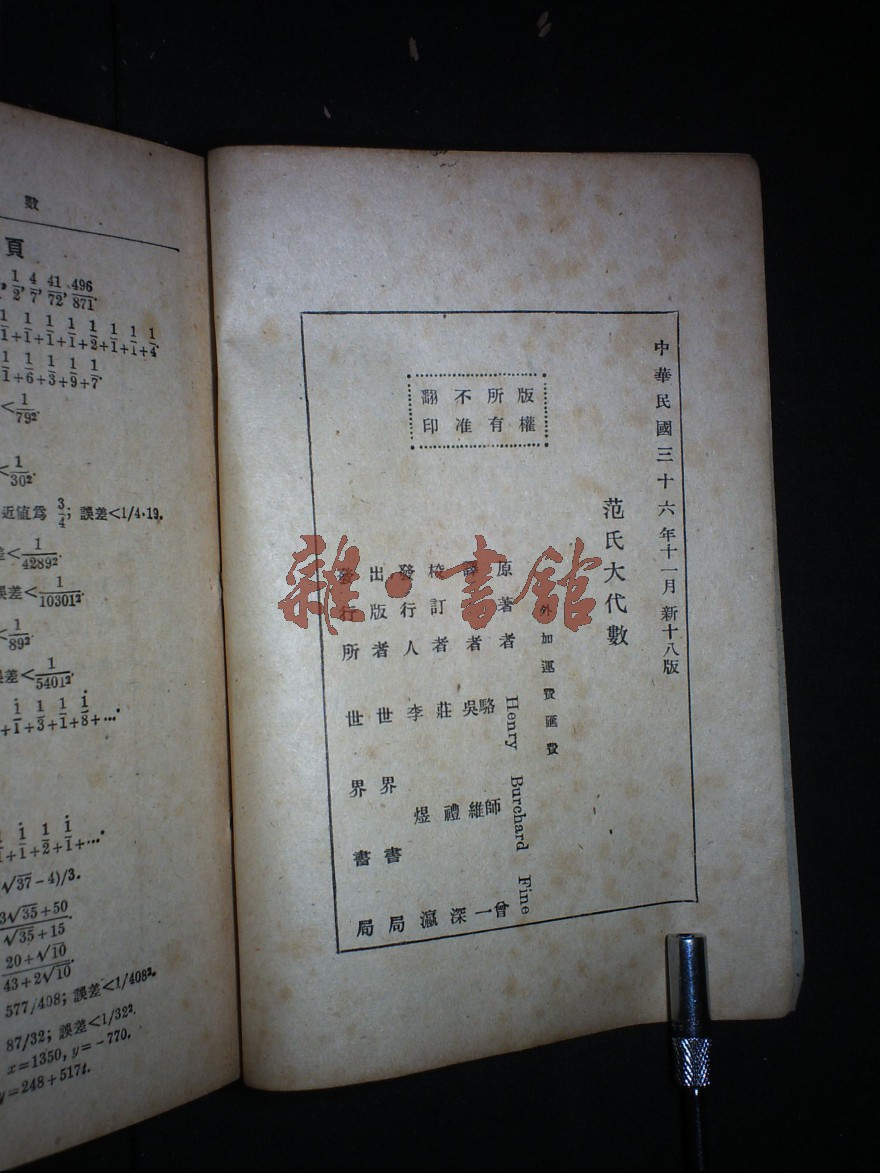 數
頁
1/2, 4/7, 41/72, 496/871.
1/1+1/1+1/1+1/2+1/1+1/1+1/4.
1/1+1/6+1/3+1/9+1/7.
<1/79².
<1/30².
近值爲 3/4; 誤差<1/4·19.
差<1/4289².
誤差<1/10301².
<1/89².
誤差<1/5401².
+1/1+1/3+1/1+1/8+…
1/1+1/2+1/1+…
√37-4)/3.
3√35+50/√35+15.
20+√10/43+2√10.
577/408; 誤差<1/408².
87/32; 誤差<1/32².
x=1350, y=-770.
y=248+517t.
中華民國三十六年十一月新十八版
版權
所有
不准
翻印
范氏大代數
外加運費匯費
原著者 Henry Burchard Fine
譯者 駱師曾
吳維一
校訂者 莊禮深
發行人 李煜瀛
出版者 世界書局
發行所 世界書局
雜·書館